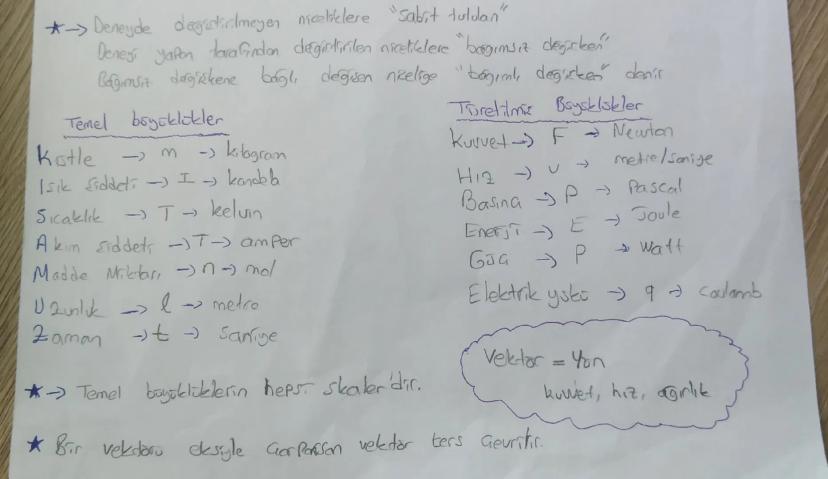 ★ → Deneyde değiştirilmeyen niceliklere "sabit tutulan"
Deneyi yapan tarafından değiştirilen niceliklere "bağımsız değişken"
Bağımsız değişkene bağlı değişen niceliğe "bağımlı değişken" denir
Temel büyüklükler
Kütle → m → kilogram
Işık şiddeti → I → kandela
Sıcaklık → T → kelvin
Akım şiddeti → T → amper
Madde Miktarı → n → mol
Uzunluk → l → metre
Zaman → t → saniye
Türetilmiş Büyüklükler
Kuvvet → F → Newton
Hız → v → metre/saniye
Basınç → P → Pascal
Enerji → E → Joule
Güç → P → Watt
Elektrik yükü → q → Coulomb
Vektör = Yön
kuvvet, hız, ağırlık
★ → Temel büyüklüklerin hepsi skaler'dir.
★ Bir vektörü eksiyle çarparsan vektör ters çevrilir.